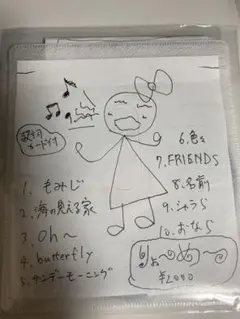 1. もみじ
2. 海の見える家
3. Oh〜
4. butterfly
5. サンデーモーニング
6. 色を
7. FRIENDS
8. 名前
9. シャラら
10. おなら
りょ〜め〜
¥1,000